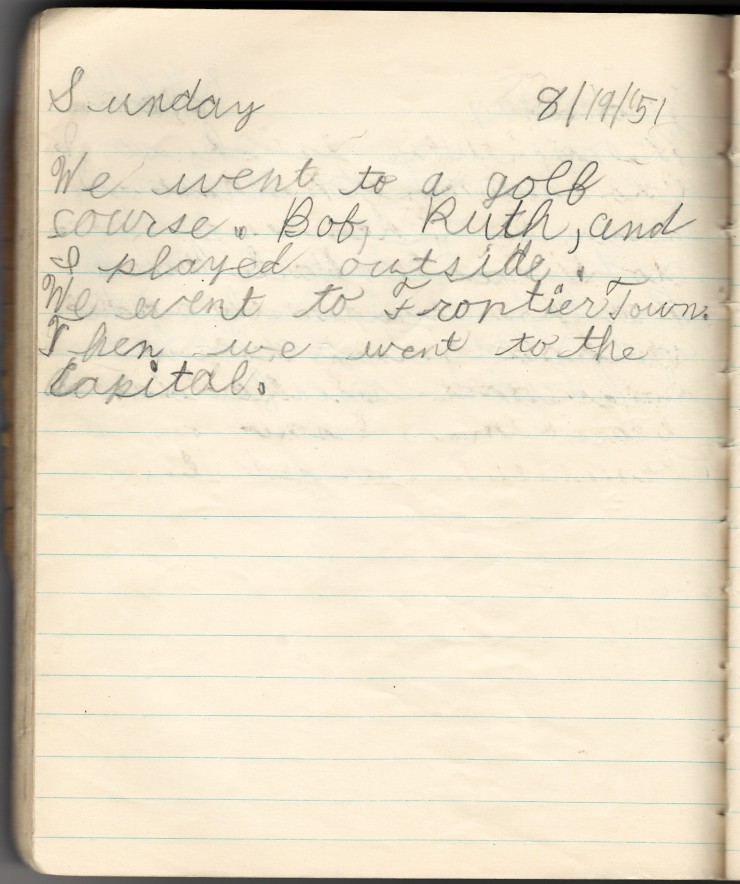 Sunday 8/19/51
We went to a golf
course. Bob, Ruth, and
I played outside.
We went to Frontier Town.
Then we went to the
Capital.